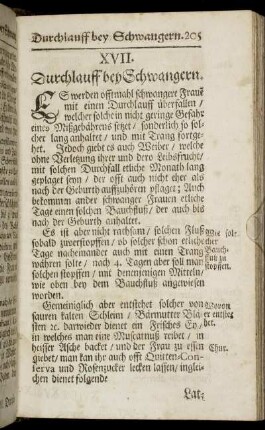 Durchlauff bey Schwangern. 205
XVII.
Durchlauff bey Schwangern.
ES werden offtmahl schwangere Frauẽ
mit einen Durchlauff überfallen /
welcher solche in nicht geringe Gefahr
eines Mißgebährens setzet / sonderlich so sol-
cher lang anhaltet / und mit Trang fortge-
het. Jedoch giebt es auch Weiber / welche
ohne Verletzung ihrer und dero Leibsfrucht /
mit solchen Durchfall etliche Monath lang
geplaget seyn / der offt auch nicht eher als
nach der Geburth auffzuhören pflaget; Auch
bekommen ander schwanger Frauen etliche
Tage einen solchen Bauchfluß / der auch bis
nach der Geburth anhaltet.
Es ist aber nicht rathsam / solchen Fluß
sobald zuverstopffen / ob solcher schon etliche
Tage nacheinander auch mit einen Trang
währen solte / nach 4. Tagen aber soll man
solchen stopffen / mit denenjenigen Mitteln /
wie oben bey dem Bauchfluß angewiesen
worden.
sol-
cher
Bauch-
fluß zu
stopffen.
Gemeiniglich aber entstehet solcher von
sauren kalten Schleim / Bärmutter Blä-
sten ꝛc. darwieder dienet ein Frisches Ey /
in welches man eine Muscatnuß reibet / in
heisser Asche backet / und der Frau zu essen
giebet / man kan ihr auch offt Quitten-Con-
serva und Rosenzucker lecken lassen / inglei-
chen dienet folgende
Wovon
er entste-
het.
Chur.
Lat-